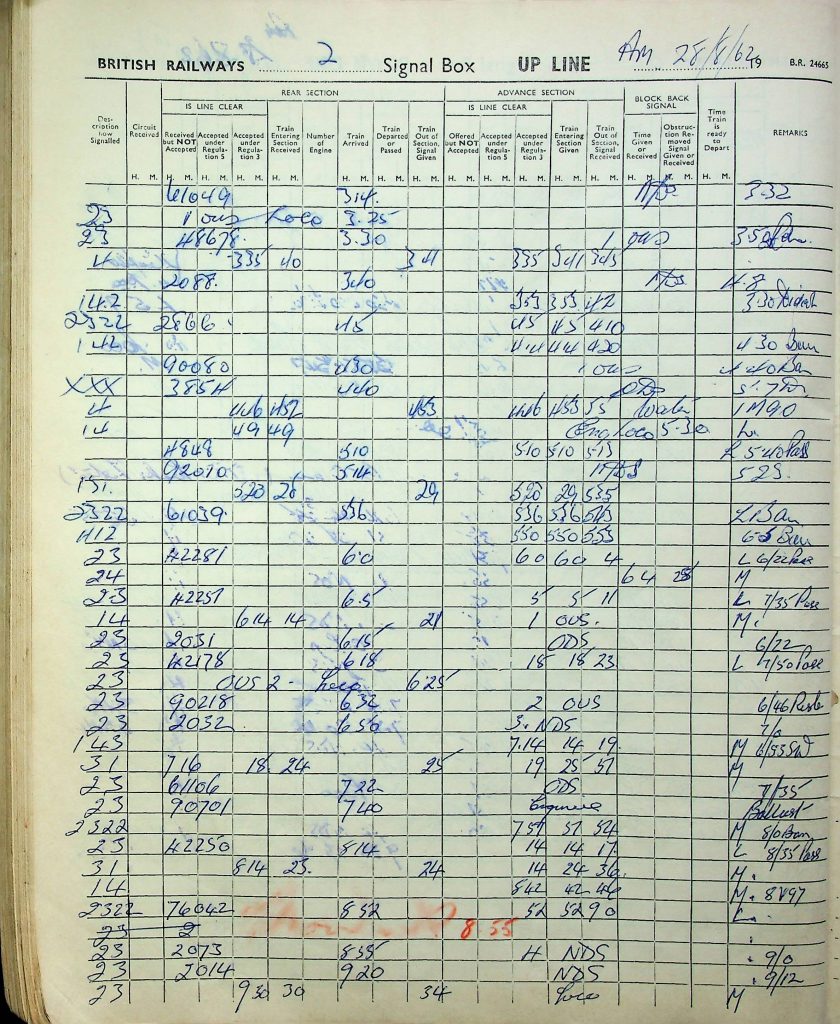 BRITISH RAILWAYS 2 Signal Box UP LINE AM 28/8/62 19 B.R. 24665
REAR SECTION ADVANCE SECTION
IS LINE CLEAR IS LINE CLEAR BLOCK BACK SIGNAL
Description how Signalled Circuit Received Received but NOT Accepted Accepted under Regulation 5 Accepted under Regulation 3 Train Entering Section Received Number of Engine Train Arrived Train Departed or Passed Train Out of Section, Signal Given Offered but NOT Accepted Accepted under Regulation 5 Accepted under Regulation 3 Train Entering Section Given Train Out of Section, Signal Received Time Given or Received Obstruction Removed Signal Given or Received Time Train is ready to Depart REMARKS
H. M. H. M. H. M. H. M. H. M. H. M. H. M. H. M. H. M. H. M. H. M. H. M. H. M. H. M. H. M. H. M.
61049 314 3-32
23 1 OUS Loco 3.25
23 48678 3.30 1 OUS
4 335 40 341 335 341 345
2088 340 4-8
142 353 353 42 3.30
2322 2866 45 45 45 410
142 414 414 420 4 30 Ban
90080 430 1 OUS 4 40 Ban
XXX 3854 440 ODS
4 446 452 453 446 453 55 1M90
14 49 49 Eng Loco 5-30
4848 510 510 510 513 L 540 Pass
92010 514 525
151. 520 28 29 520 29 535
2322 61039 536 536 536 543 L Ban
412 550 550 553 6-5 Ban
23 42281 6.0 6 0 6 0 4 L 6/22 Pass
24 6 4 28 M
23 42251 6.5 5 5 11 L 7/35 Pass
14 614 14 21 1 OUS. M.
23 2031 615 ODS 6/22
23 42178 618 18 18 23 L 7/50 Pass
23 OUS 2 - Loco 6 25
23 90218 632 2 OUS 6/46
23 2032 650 3. NDS 7/0
143 7.14 14 19. M 6/55
31 716 18 24 25 19 25 31 M
23 61106 722 ODS 7/35
23 90701 740 Engineers Ballast
2322 751 51 54 M 8/0 Ban
23 42250 814 14 14 17 L 8/35 Pass
31 814 23. 24 14 24 36. M.
14 842 42 46 M. 8V97
2322 76042 852 52 52 90 L
23 2 8 55
23 2073 855 4 NDS 9/0
23 2014 920 NDS 9/12
23 930 30 34 Loco M